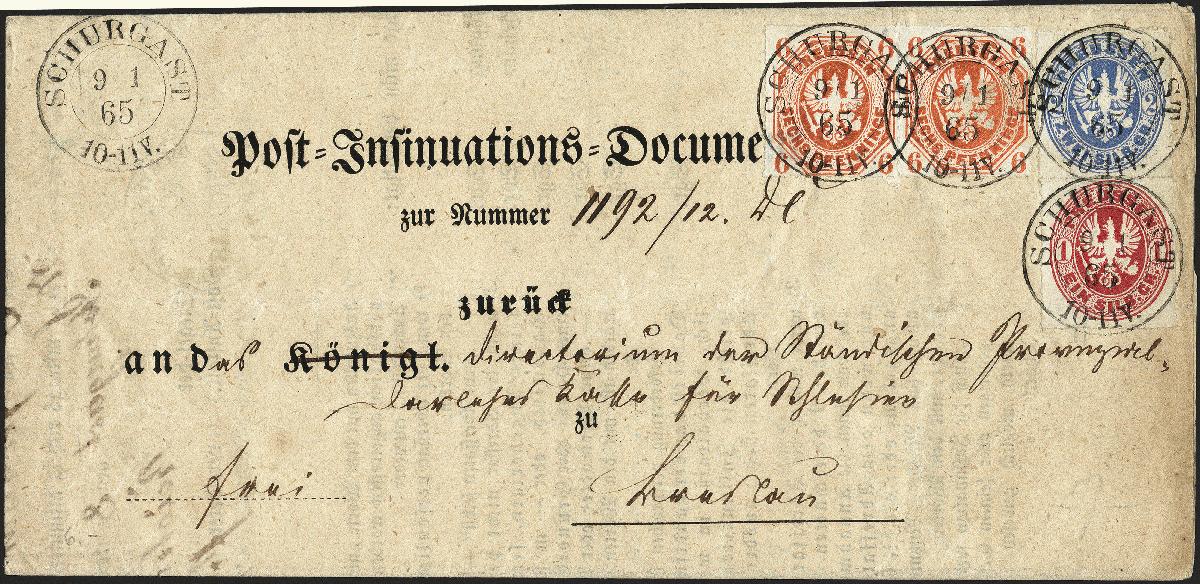 SCHURGAST
9 1
65
10-11V.
SCHURGAST
9 1
65
10-11V.
SCHURGAST
9 1
65
10-11V.
SCHURGAST
9 1
65
10-11V.
6 6
SECHS PFENNINGE
6 6
6
SECHS PFENNINGE
6
2 ZWEI SILB.GR. 2
Post-Insinuations-Docume
zur Nummer 1192/12. Dl
SCHURGAST
9 1
65
10-11V.
1 EIN SILB.GR.
zurück
an das Königl. Directorium der Ständischen Provinzial-
Darlehns Kasse für Schlesien
zu
frei
Breslau